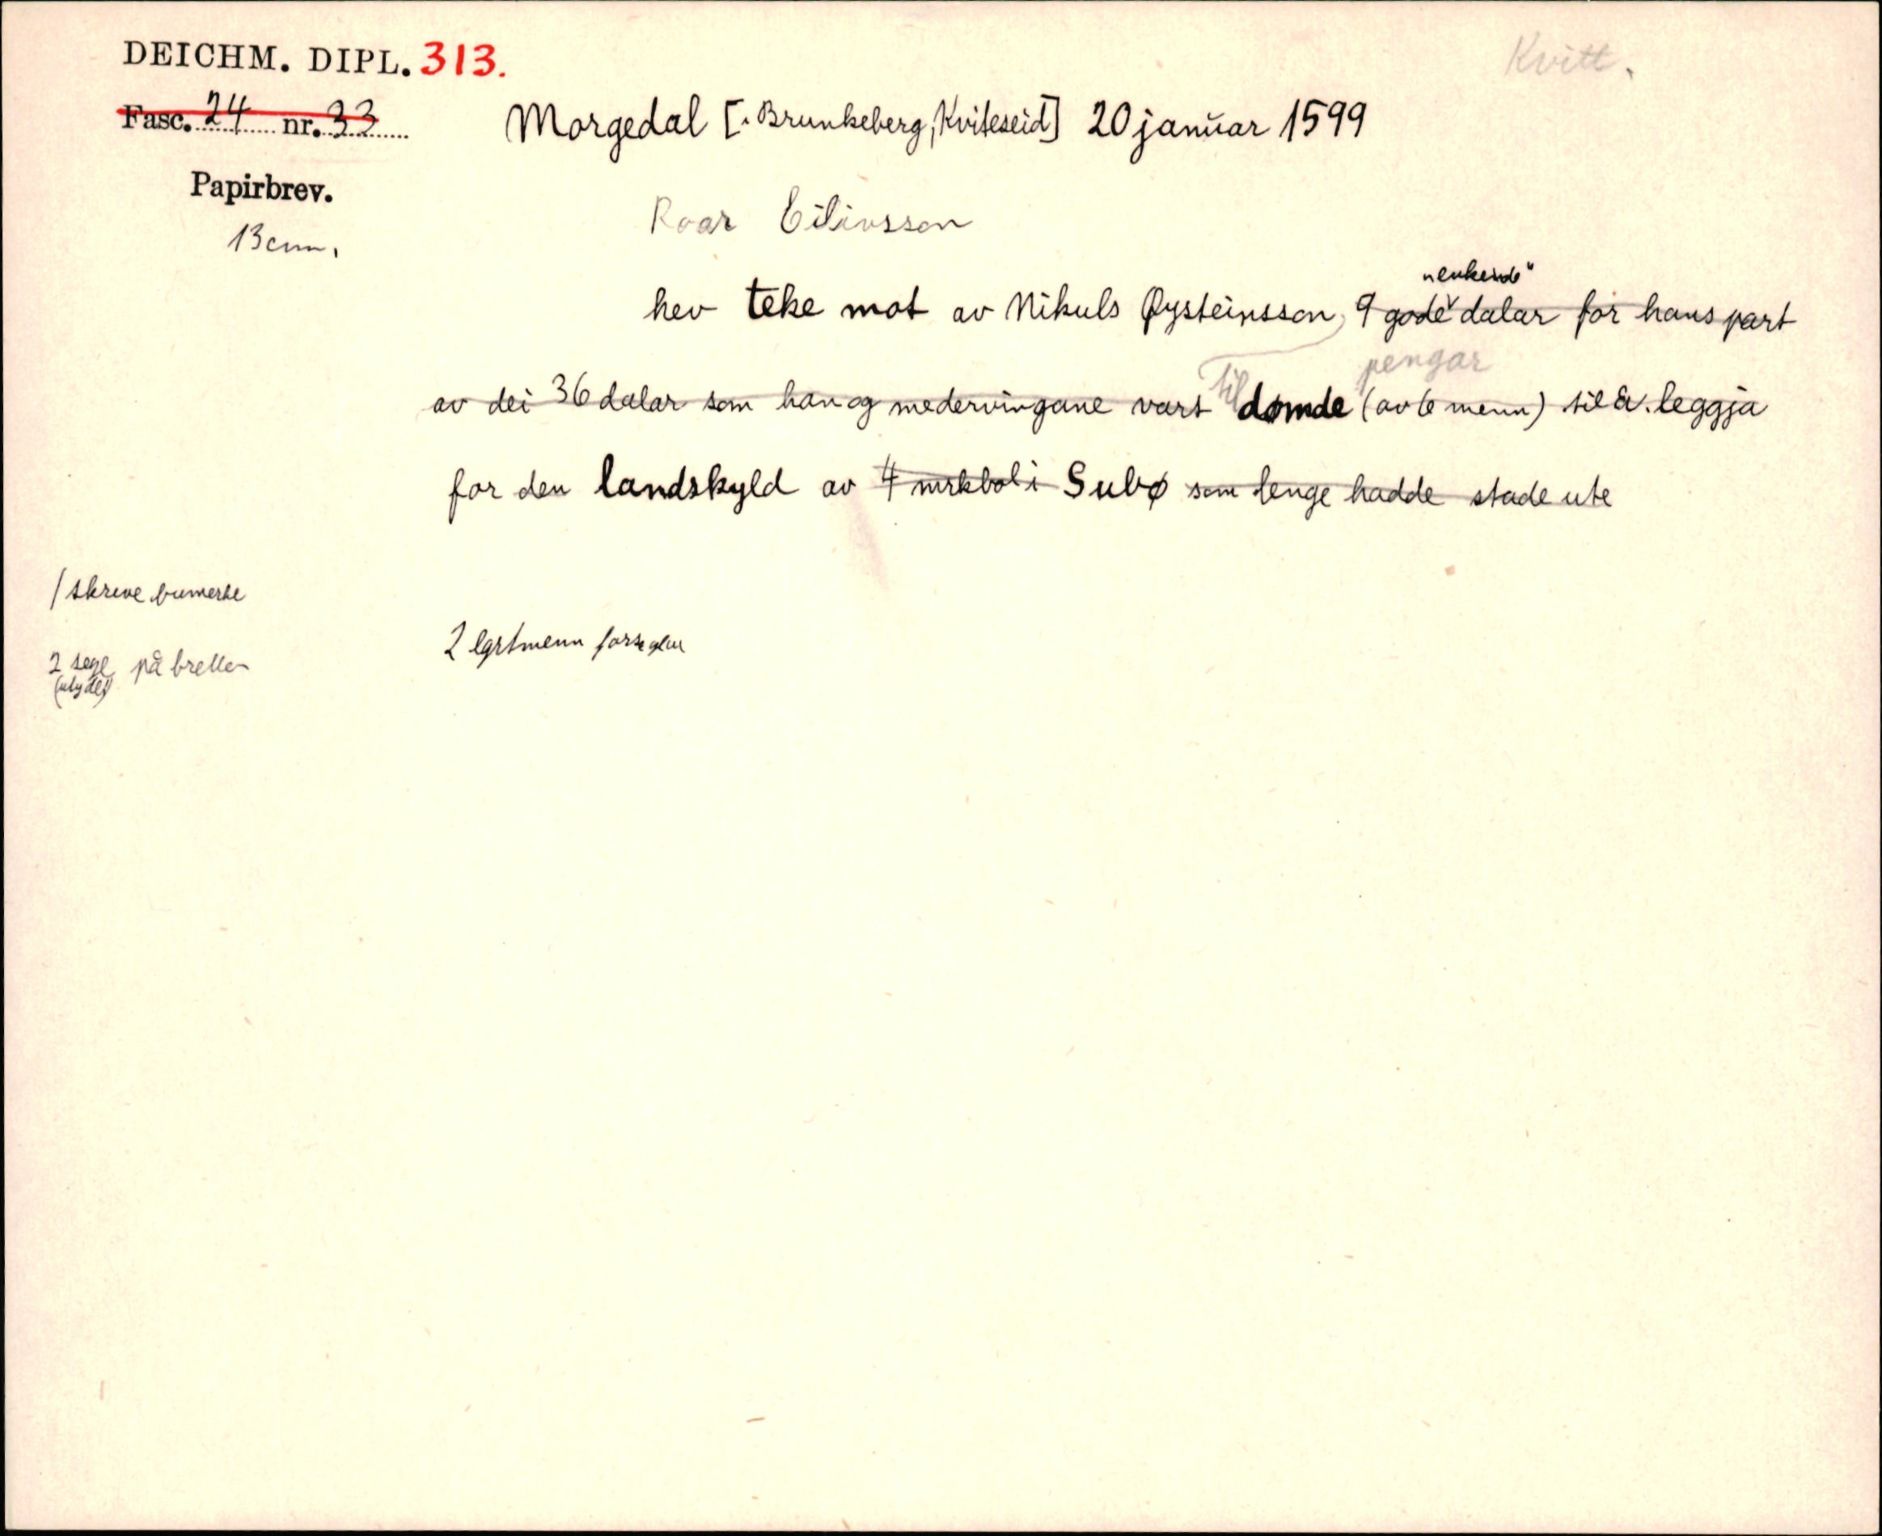 DEICHM. DIPL. 313.
Kvitt.
Fasc. 24 nr. 33
Morgedal [. Brunkeberg, Kviteseid] 20 januar 1599
Papirbrev.
13 cm.
Roar Eilivsson
"enkende"
hev teke mot av Nikuls Øysteinsson, 9 gode dalar for hans part
pengar
av dei 36 dalar som han og medervingane vart til dømde (av 6 menn) til å leggja
for den landskyld av 4 mrkbol i Subø som lenge hadde stade ute
1 skreve bumerke
2 lgrtmenn forseglar
2 segl på brettet
(utydel)